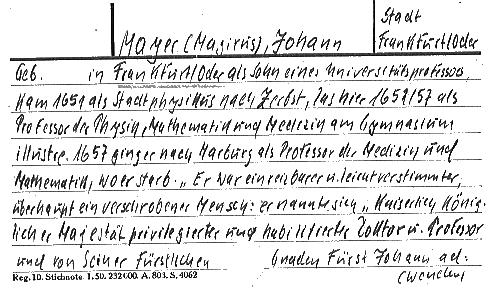 Stadt
Mayer (Magirus), Johann Frankfurt/Oder
Geb. in Frankfurt/Oder als Sohn eines Universitätsprofessors,
kam 1651 als Stadtphysikus nach Zerbst, las hier 1651/57 als
Professor der Physik, Mathematik und Medizin am Gymnasium
illustre. 1657 ging er nach Marburg als Professor der Medizin und
Mathematik, wo er starb. „Er war ein reizbarer u. leicht verstimmter,
überhaupt ein verschrobener Mensch: er nannte sich „Kaiserlich König-
licher Majestät privilegierter und habilitierter Doktor u. Professor
und von Seiner Fürstlichen Gnaden Fürst Johann ad-
Reg. 10. Stichnote 1. 50. 232000. A. 803. S. 4062